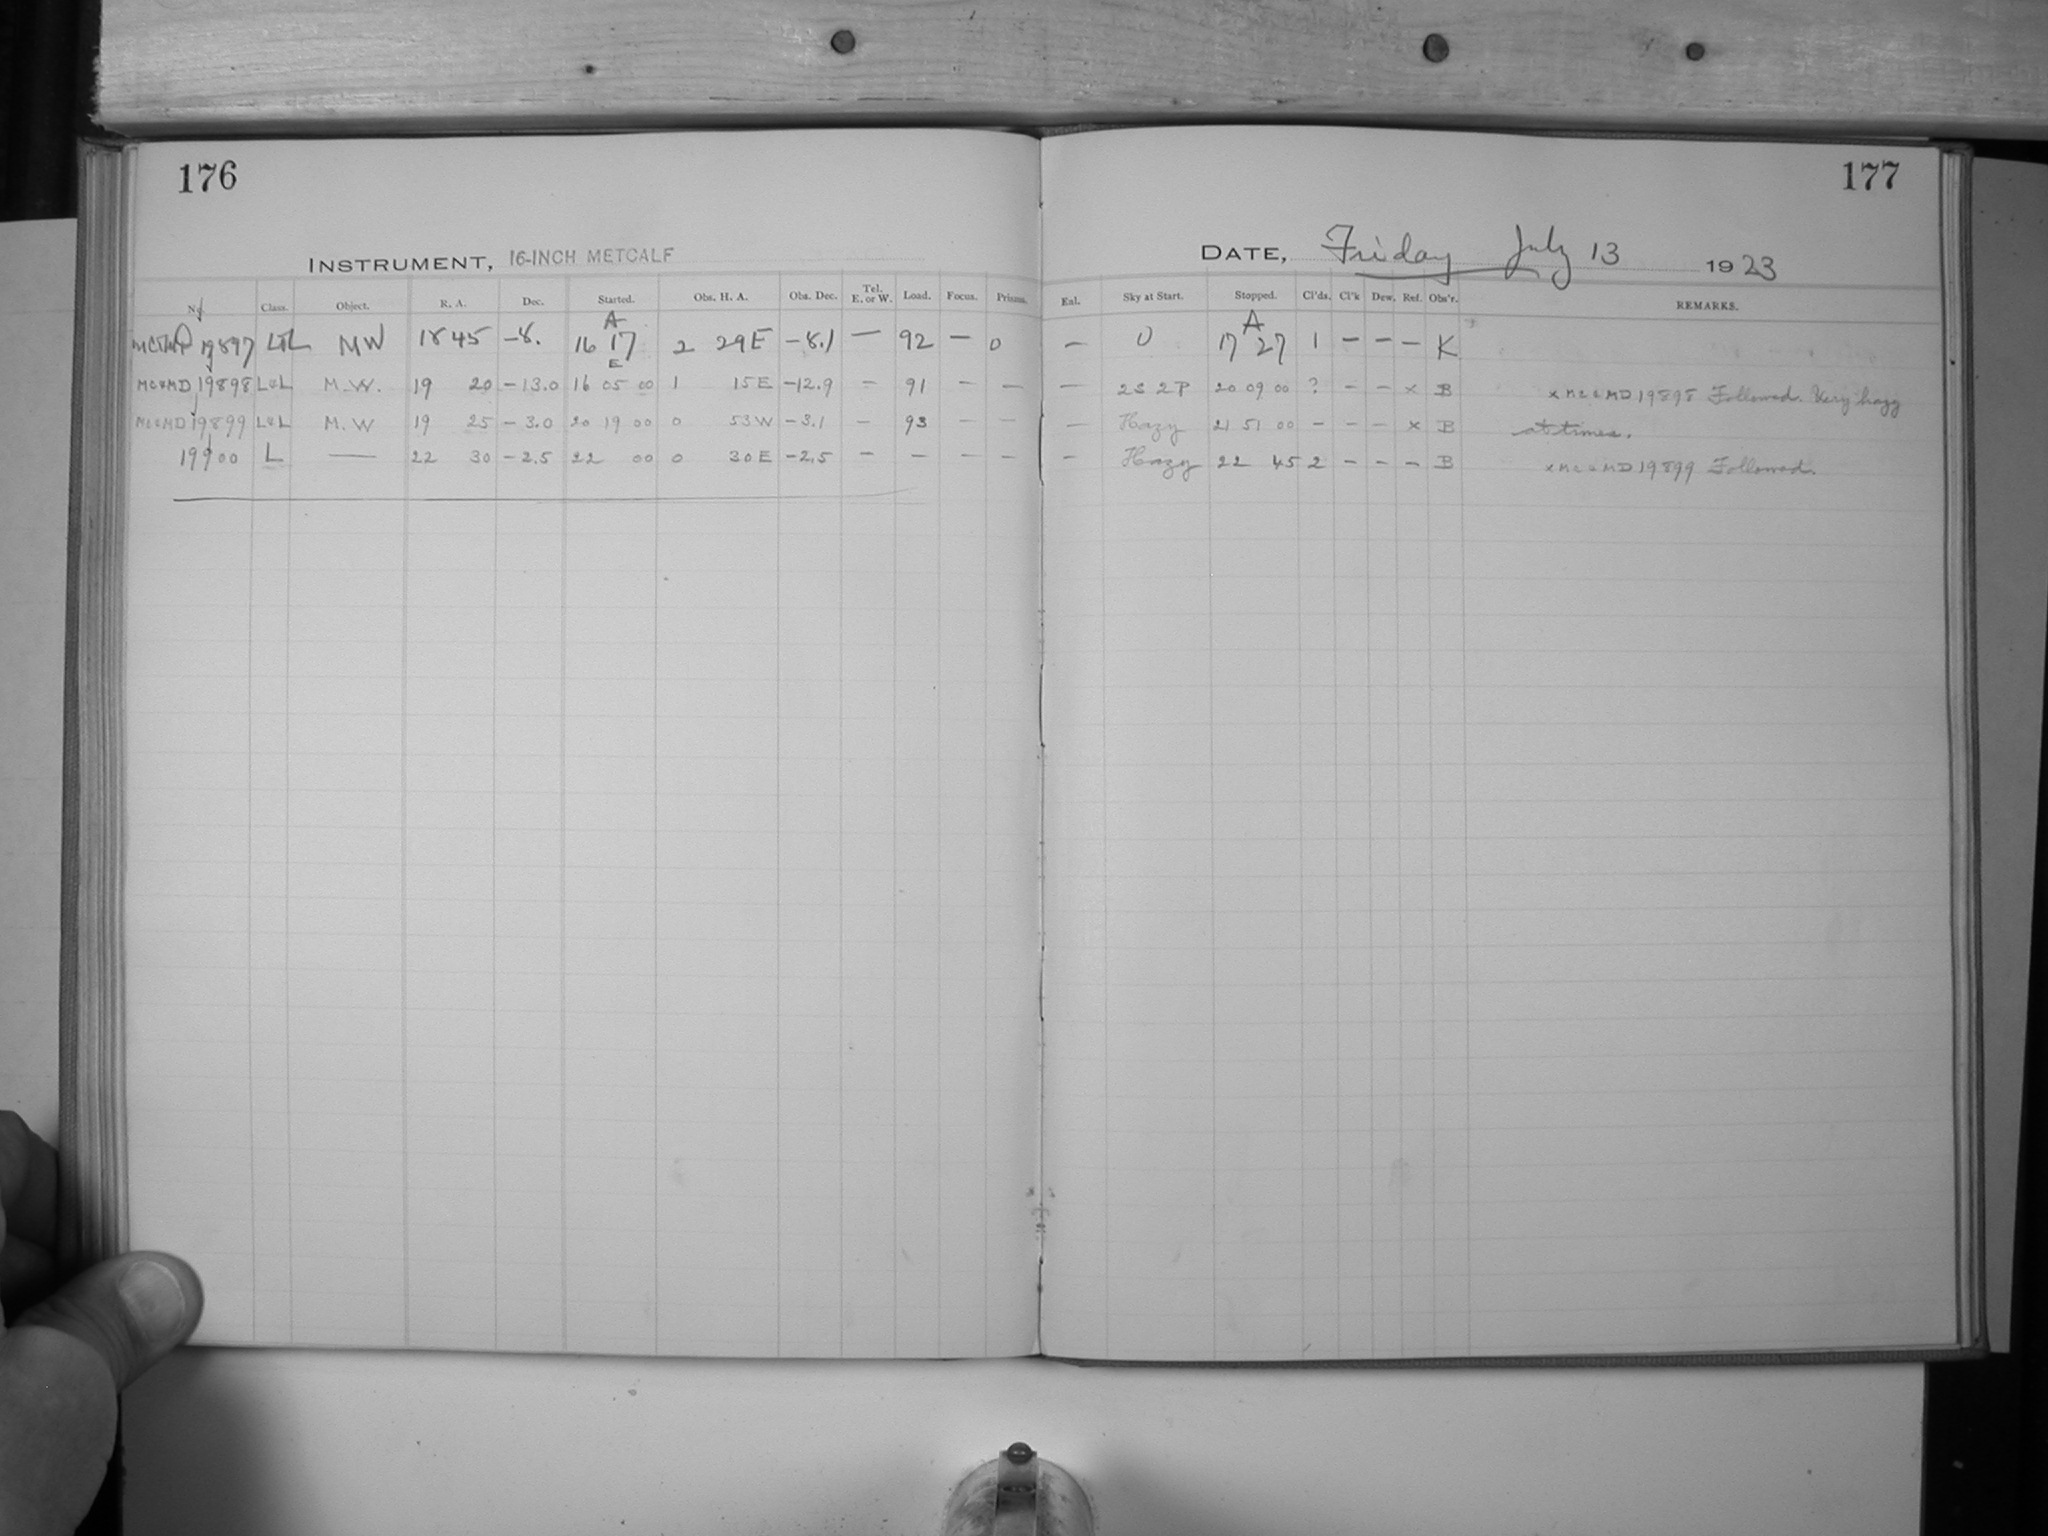 176
177
INSTRUMENT, 16-INCH METCALF
DATE, Friday July 13 1923
No. Class. Object. R. A. Dec. Started. Obs. H. A. Obs. Dec. Tel. E. or W. Load. Focus. Prisms. Enl. Sky at Start. Stopped. Cl'ds. Cl'k Dew. Ref. Obs'r. REMARKS.
A A
19897 L&L MW 18 45 -8. 16 17 2 29E -8.1 — 92 — 0 — 0 17 27 1 — — — K
E
MC&MD 19898 L&L M.W. 19 20 -13.0 16 05 00 1 15E -12.9 — 91 — — — 2S 2P 20 09 00 ? — — x B x MC&MD 19898 Followed. Very hazy
MC&MD 19899 L&L M.W 19 25 -3.0 20 19 00 0 53W -3.1 — 93 — — — Hazy 21 51 00 — — — x B at times.
19900 L — 22 30 -2.5 22 00 0 30E -2.5 — — — — — Hazy 22 45 2 — — — B x MC&MD 19899 Followed.